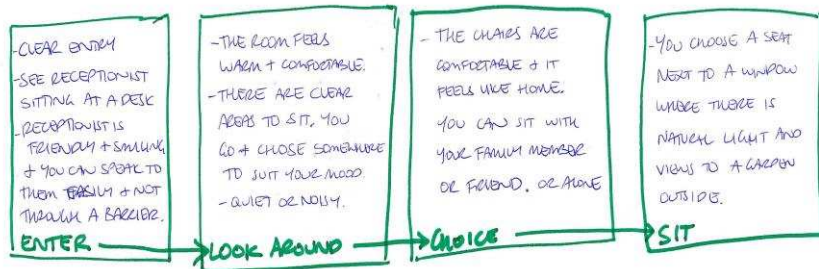 -CLEAR ENTRY
-SEE RECEPTIONIST
SITTING AT A DESK
-RECEPTIONIST IS
FRIENDLY + SMILING
+ YOU CAN SPEAK TO
THEM EASILY + NOT
THROUGH A BARRIER.
ENTER
-THE ROOM FEELS
WARM + COMFORTABLE.
-THERE ARE CLEAR
AREAS TO SIT, YOU
GO + CHOSE SOMEWHERE
TO SUIT YOUR MOOD
-QUIET OR NOISY.
LOOK AROUND
- THE CHAIRS ARE
COMFORTABLE + IT
FEELS LIKE HOME.
YOU CAN SIT WITH
YOUR FAMILY MEMBER
OR FRIEND, OR ALONE
CHOICE
-YOU CHOOSE A SEAT
NEXT TO A WINDOW
WHERE THERE IS
NATURAL LIGHT AND
VIEWS TO A GARDEN
OUTSIDE.
SIT